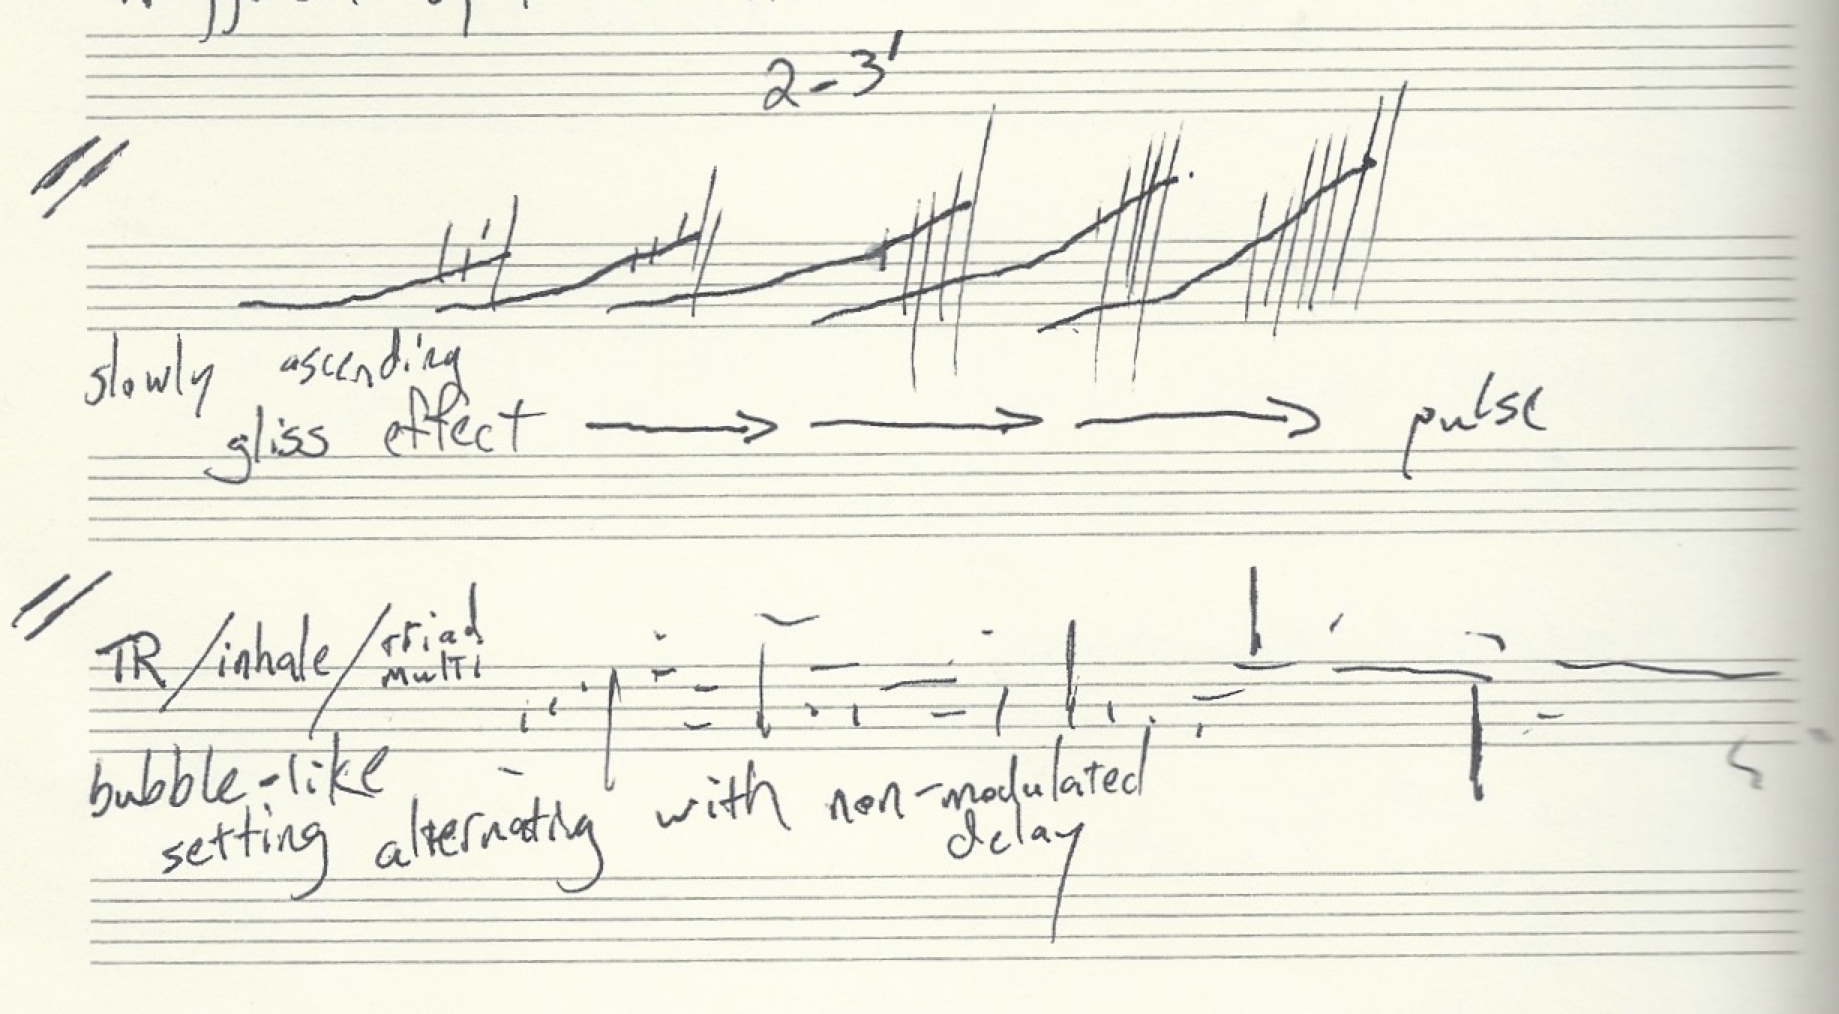 2-3'
slowly ascending
gliss effect → → → pulse
TR/inhale/triad
multi
bubble-like
setting alternating with non-modulated
delay